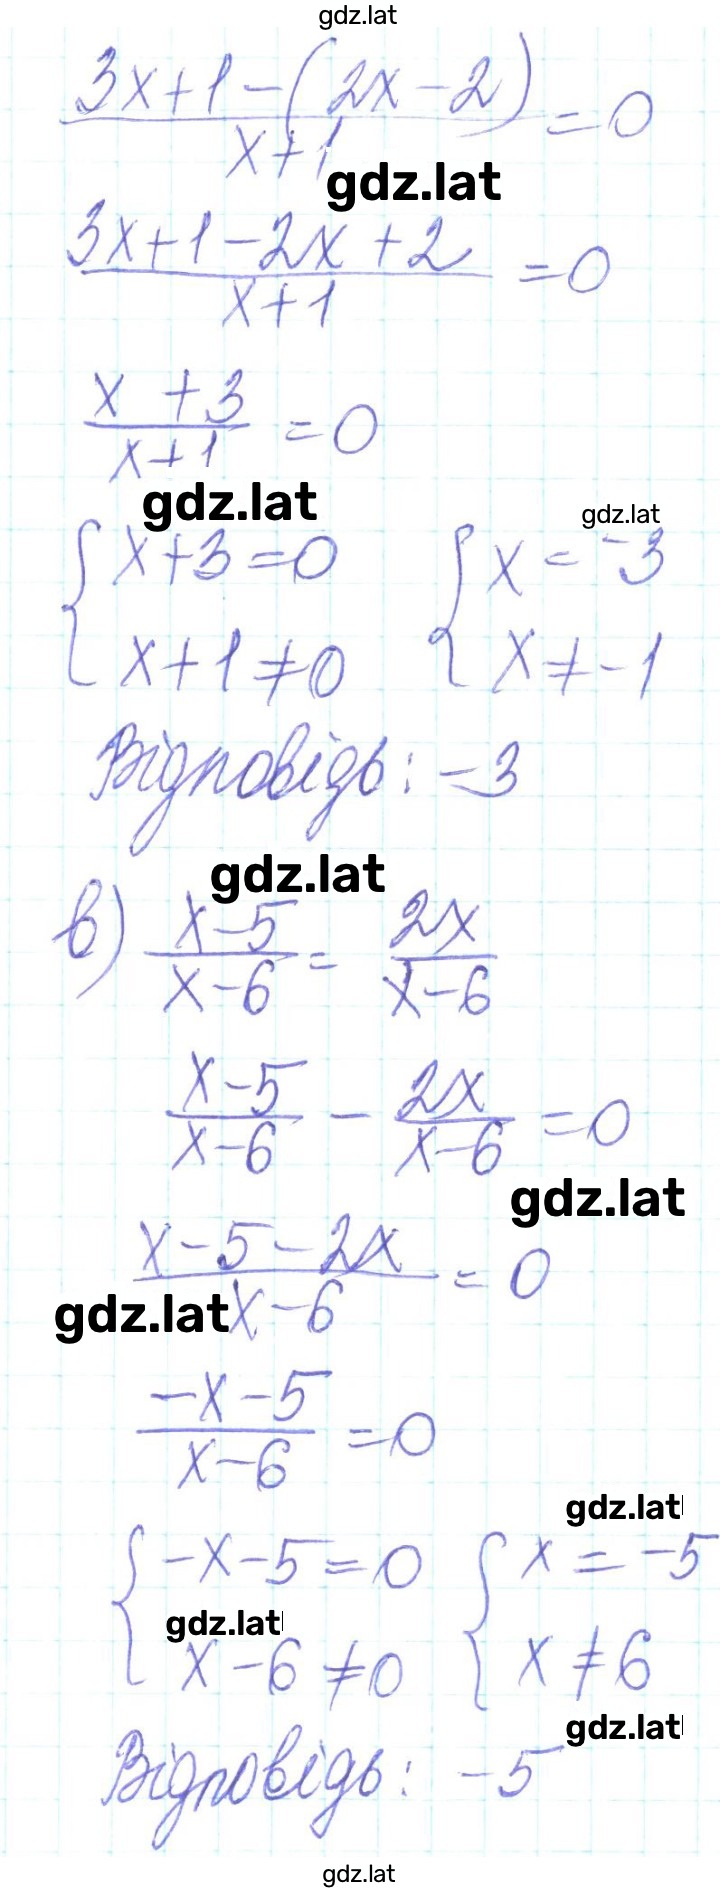 gdz.lat
3x+1-(2x-2)
x+1
=0
gdz.lat
3x+1-2x+2
x+1
=0
x +3
x+1
=0
gdz.lat
gdz.lat
{ x+3=0 { x=-3
x+1≠0 x≠-1
Відповідь: -3
gdz.lat
в) x-5 = 2x
x-6 x-6
x-5 - 2x =0
x-6 x-6
gdz.lat
x-5-2x = 0
gdz.lat x-6
-x-5 =0
x-6
gdz.lat
{ -x-5=0 { x=-5
gdz.lat
x-6≠0 x≠6
gdz.lat
Відповідь: -5
gdz.lat